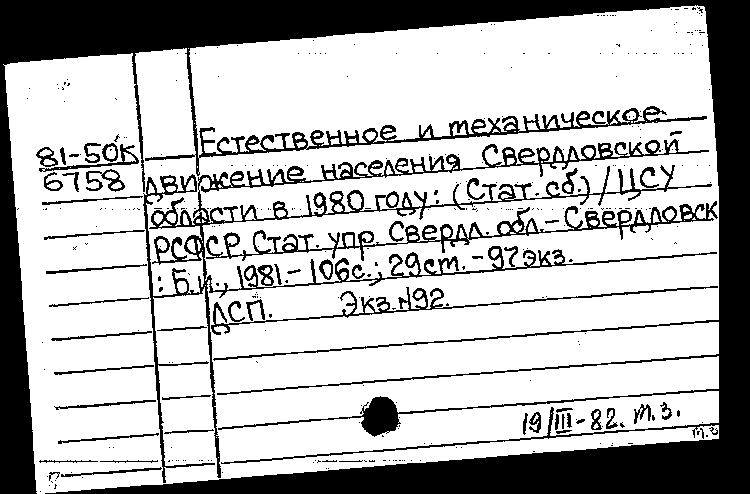 81-50К
6758
Естественное и механическое
движение населения Свердловской
области в 1980 году: (Стат. сб.) / ЦСУ
РСФСР, Стат. упр. Свердл. обл. - Свердловск
: Б.и., 1981. - 106с.; 29см. - 97экз.
ДСП. Экз. №92.
19/III-82. т.з.
т.з